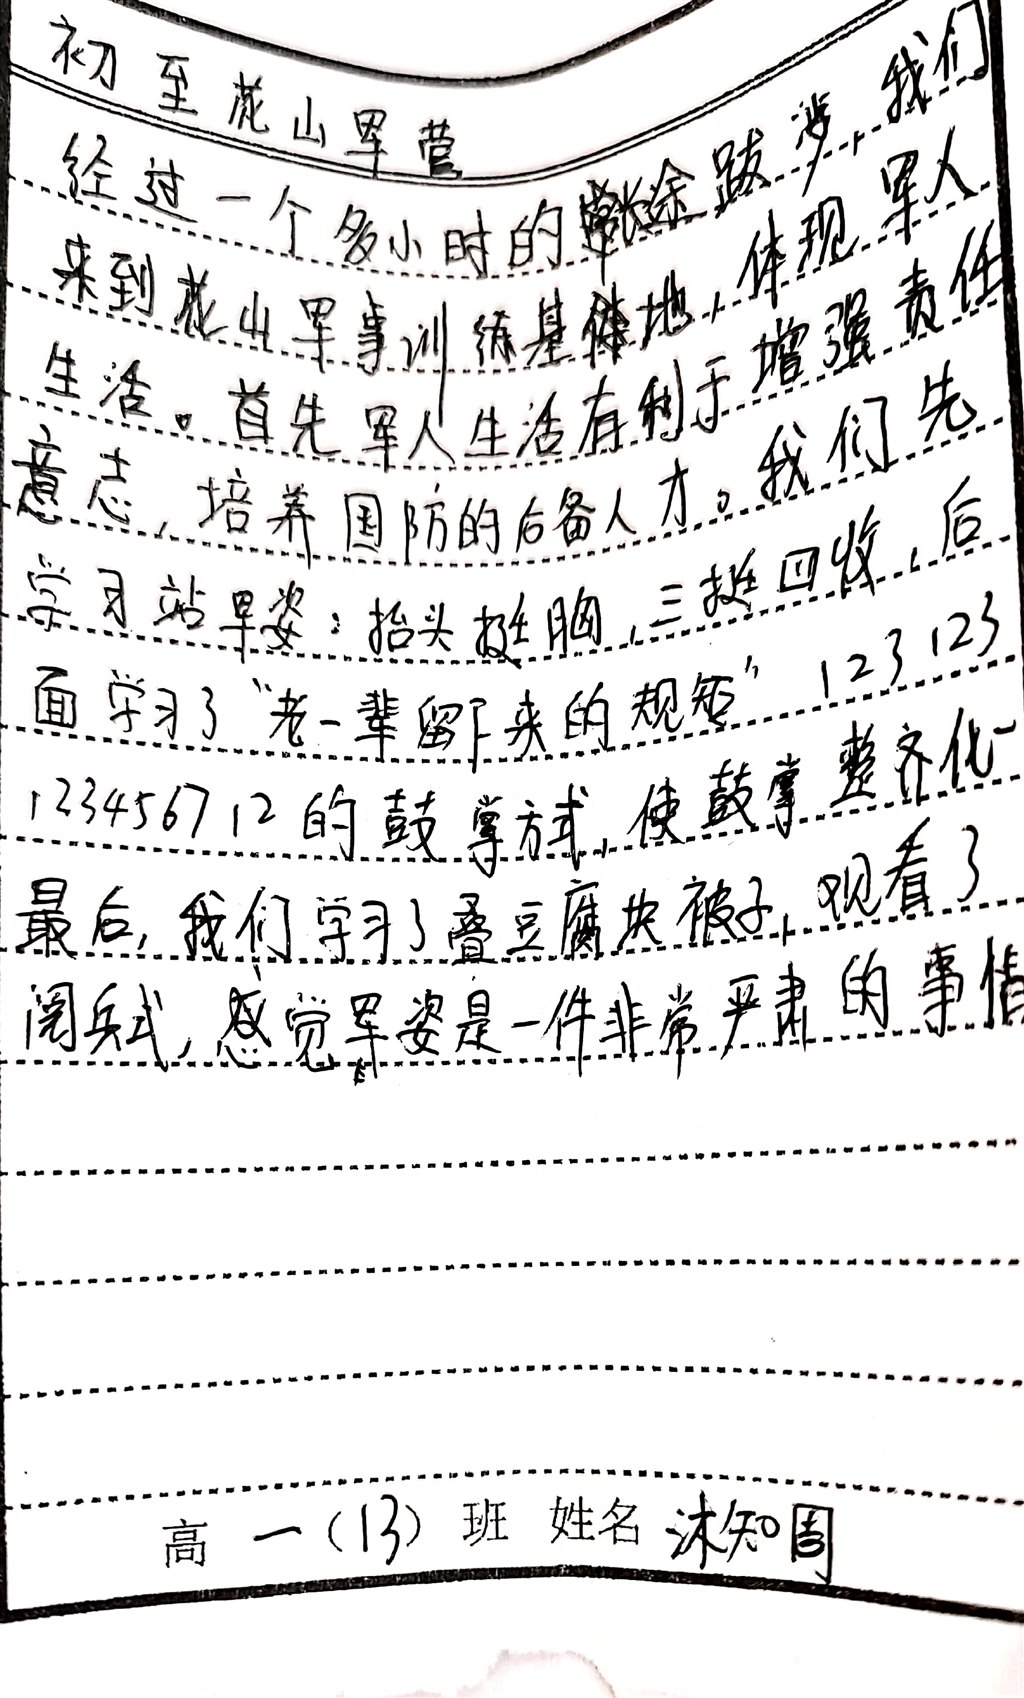 初至花山军营
经过一个多小时的长途跋涉,我们
来到花山军事训练基地,体现军人
生活。首先军人生活有利于增强责任
意志,培养国防的后备人才。我们先
学习站军姿:抬头挺胸,三挺四收,后
面学习了“老一辈留下来的规矩”123123
123456712的鼓掌方式,使鼓掌整齐化一
最后,我们学习了叠豆腐块被子,观看了
阅兵式,感觉军姿是一件非常严肃的事情
高一(13)班 姓名 沐知周